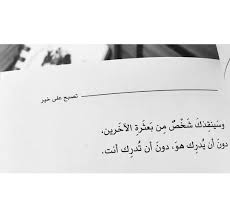 تصبح على خير
وسَينقِذكَ شَخْصٌ مِن بَعثَرة الآخَرين،
دونَ أن يُدرِك هوَ، دونَ أن تُدرِك أنت.